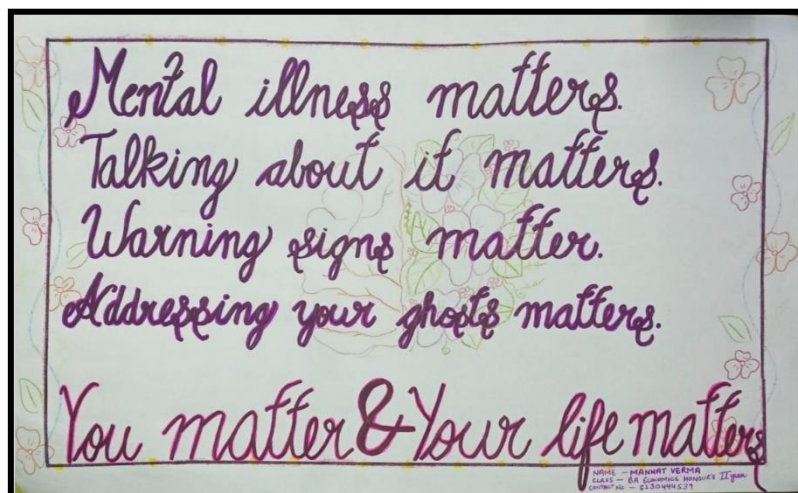 Mental illness matters.
Talking about it matters.
Warning signs matter.
Addressing your ghosts matters.
You matter & Your life matters
NAME - MANNAT VERMA
CLASS - BA ECONOMICS HONOURS II year
CONTACT NO - 6230494539